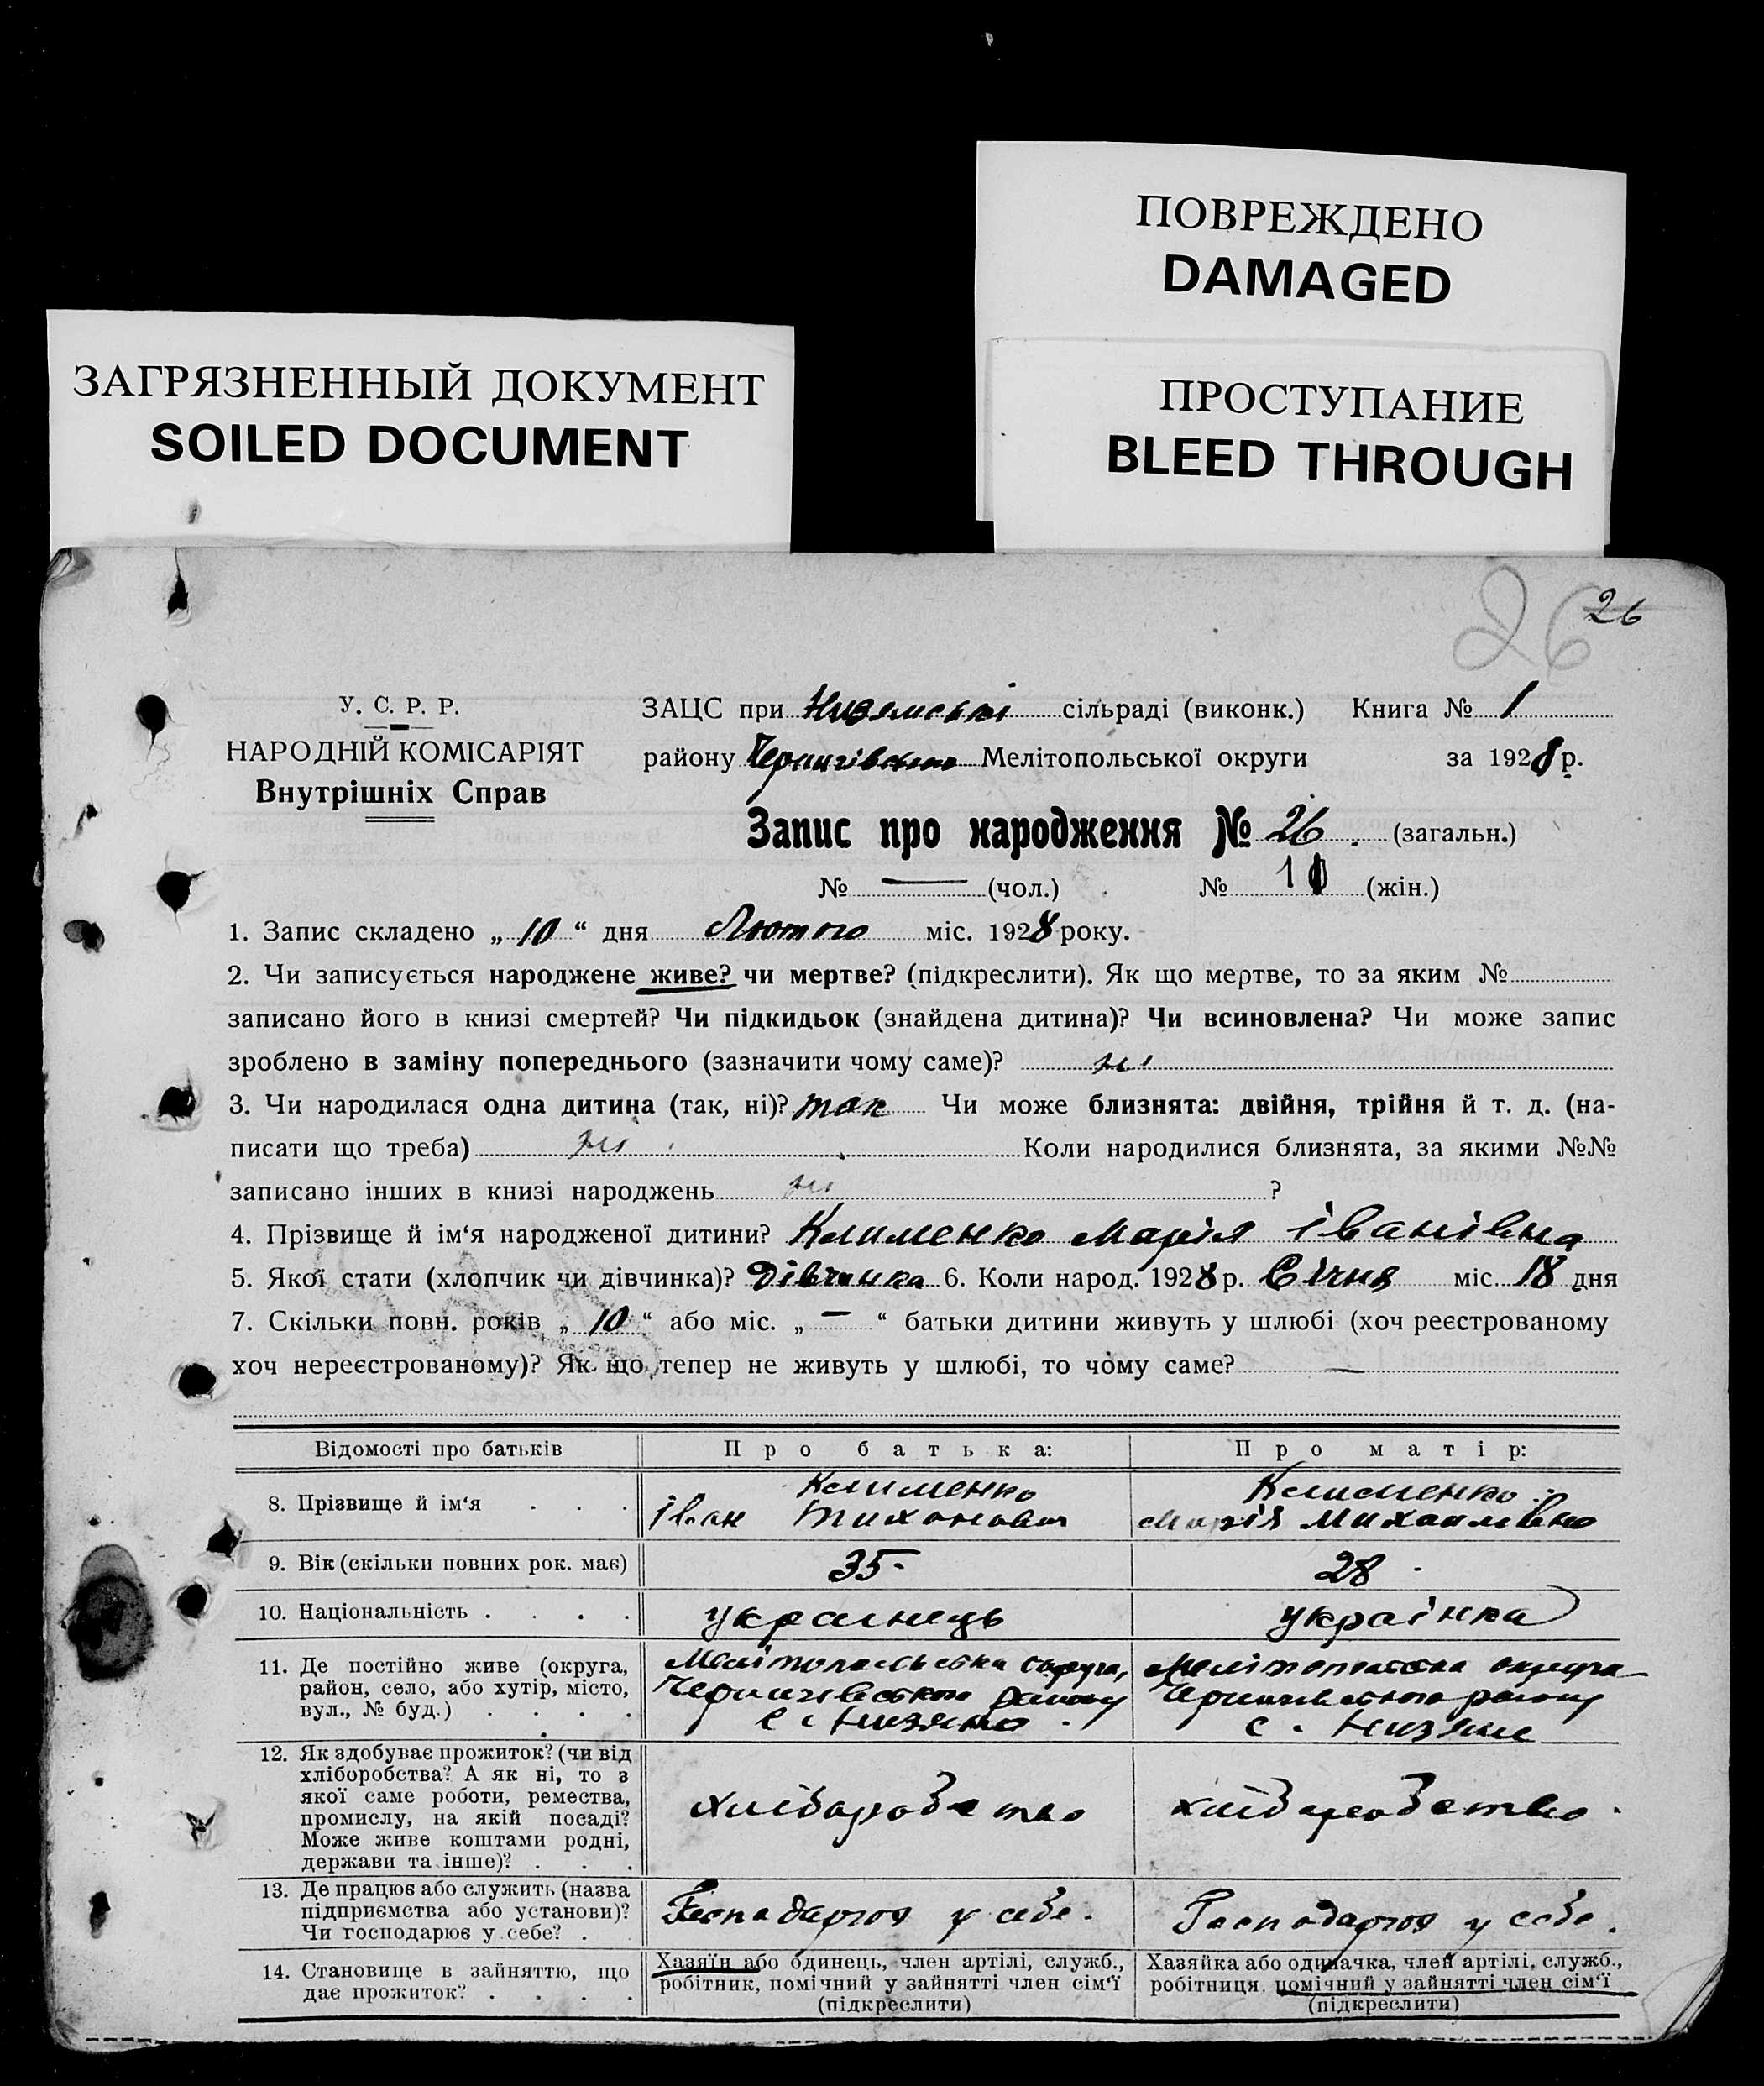 ПОВРЕЖДЕНО
DAMAGED
ЗАГРЯЗНЕННЫЙ ДОКУМЕНТ
SOILED DOCUMENT
ПРОСТУПАНИЕ
BLEED THROUGH
26 26
У. С. Р. Р.
НАРОДНІЙ КОМІСАРІЯТ
Внутрішніх Справ
ЗАЦС при сільраді (виконк.) Книга № 1
району Чернигівського Мелітопольської округи за 1928 р.
Запис про народження № 26 (загальн.)
№ — (чол.) № (жін.)
1. Запис складено „ 10 “ дня Лютого міс. 1928 року.
2. Чи записується народжене живе? чи мертве? (підкреслити). Як що мертве, то за яким №
записано його в книзі смертей? Чи підкидьок (знайдена дитина)? Чи всиновлена? Чи може запис
зроблено в заміну попереднього (зазначити чому саме)? ні
3. Чи народилася одна дитина (так, ні)? так Чи може близнята: двійня, трійня й т. д. (на-
писати що треба) ні Коли народилися близнята, за якими №№
записано інших в книзі народжень ні ?
4. Прізвище й ім‘я народженої дитини? Клименко Марія Іванівна
5. Якої стати (хлопчик чи дівчинка)? Дівчинка 6. Коли народ. 1928 р. Січня міс. 18 дня
7. Скільки повн. років „ 10 “ або міс. „ — “ батьки дитини живуть у шлюбі (хоч реєстрованому
хоч нереєстрованому)? Як що тепер не живуть у шлюбі, то чому саме? —
Відомості про батьків Про батька: Про матір:
8. Прізвище й ім‘я . . .
Клименко
Іван Тихонович
Клименко
Марія Михайлівна
9. Вік (скільки повних рок. має) 35 28
10. Національність . . . . українець українка
11. Де постійно живе (округа,
район, село, або хутір, місто,
вул., № буд.) . . . .
Мелітопольська округа,
Чернигівського району
с. Низяне
Мелітопольська округа
Чернигівського району
с. Низяне
12. Як здобуває прожиток? (чи від
хліборобства? А як ні, то з
якої саме роботи, ремества,
промислу, на якій посаді?
Може живе коштами родні,
держави та інше)? . . .
хліборобство
хліборобство
13. Де працює або служить (назва
підприємства або установи)?
Чи господарює у себе? .
Господарює у себе.
Господарює у себе.
14. Становище в зайняттю, що
дає прожиток? . . . .
Хазяїн або одинець, член артілі, служб.,
робітник, помічний у зайнятті член сім‘ї
(підкреслити)
Хазяйка або одиначка, член артілі, служб.,
робітниця, помічний у зайнятті член сім‘ї
(підкреслити)